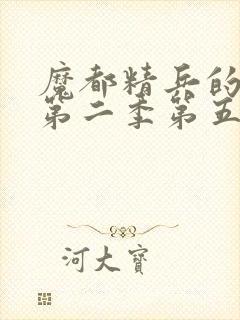 魔都精兵的
第二季第五
河大寶